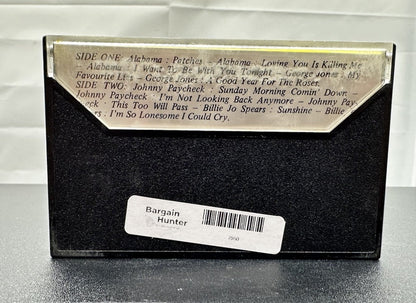 SIDE ONE: Alabama : Patches – Alabama – Loving You Is Killing Me
– Alabama : I Want To Be With You Tonight – George Jones : My
Favourite Lies – George Jones : A Good Year For The Roses.
SIDE TWO: Johnny Paycheck : Sunday Morning Comin' Down –
Johnny Paycheck : I'm Not Looking Back Anymore – Johnny Pay-
check : This Too Will Pass – Billie Jo Spears : Sunshine – Billie
ears : I'm So Lonesome I Could Cry.
Bargain
Hunter